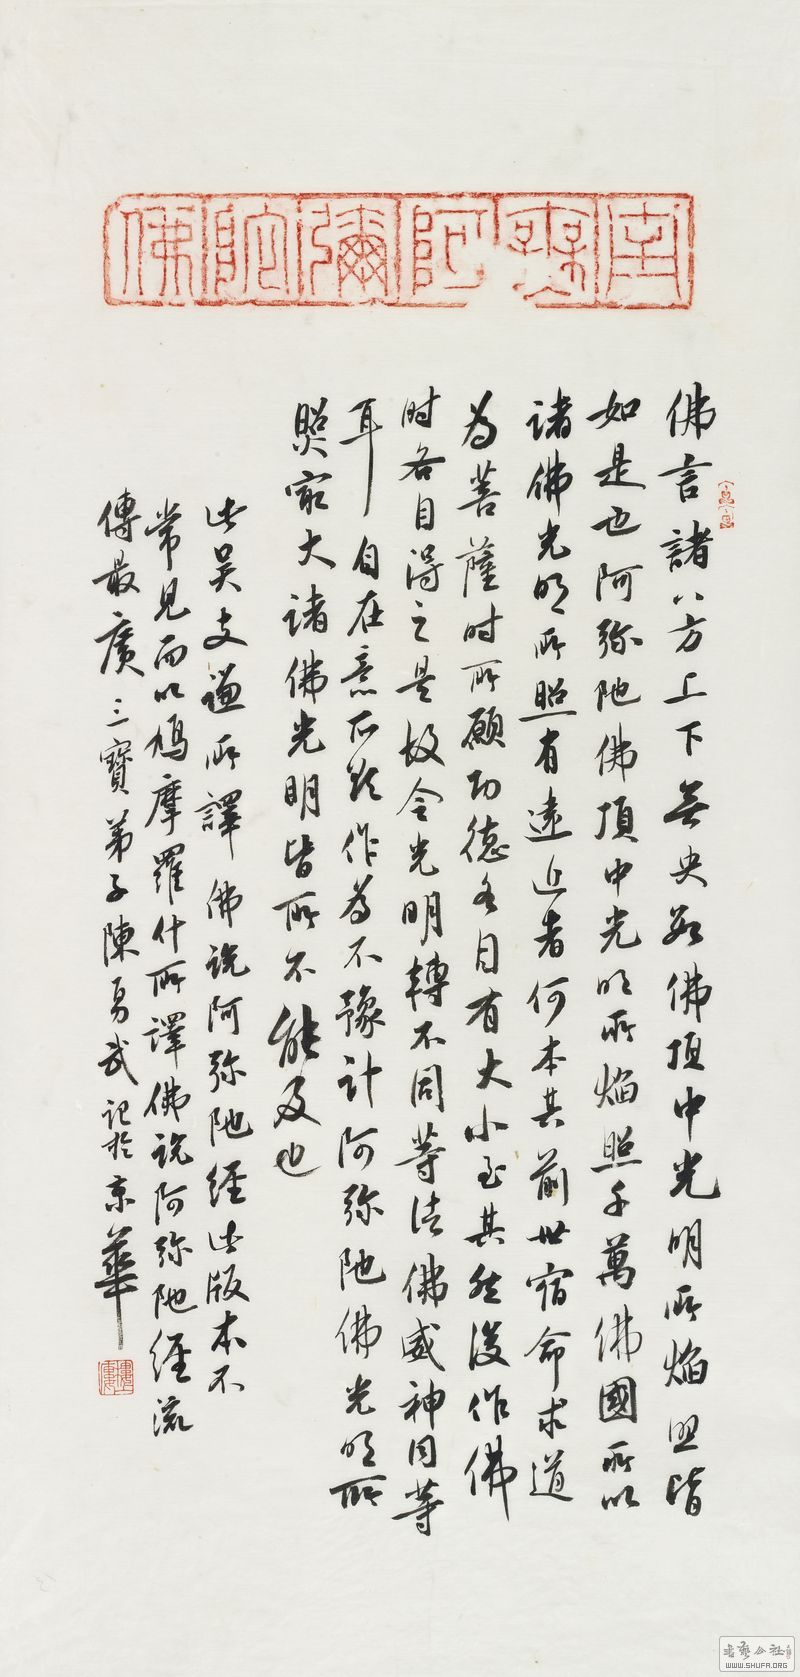 南無阿彌陀佛
佛言諸八方上下無央數佛頂中光明所焰照皆
如是也阿弥陀佛頂中光明所焰照千萬佛國所以
诸佛光明所照有遠近者何本其前世宿命求道
为菩薩时所願功德各自有大小至其然後作佛
时各自得之是故令光明轉不同等诸佛威神同等
耳自在意所欲作为不豫计阿弥陀佛光明所
照最大诸佛光明皆所不能及也
此吴支谦所譯佛说阿弥陀經此版本不
常見而以鳩摩羅什所譯佛说阿弥陀經流
傳最廣三寶弟子陳勇武记於京華
書藝公社
WWW.SHUFA.ORG